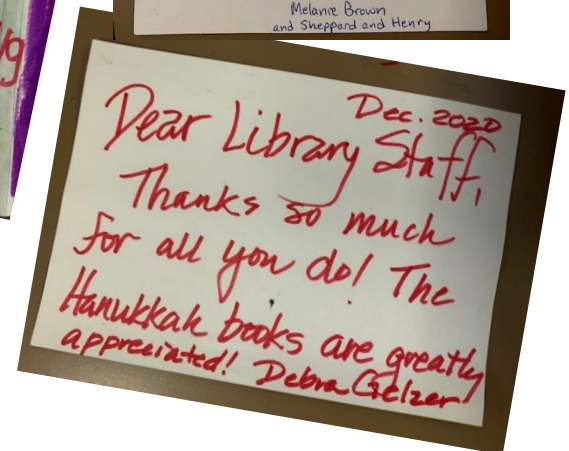 Melanie Brown
and Sheppard and Henry
Dec. 2020
Dear Library Staff,
Thanks so much
for all you do! The
Hanukkah books are greatly
appreciated! Debra Gelzer